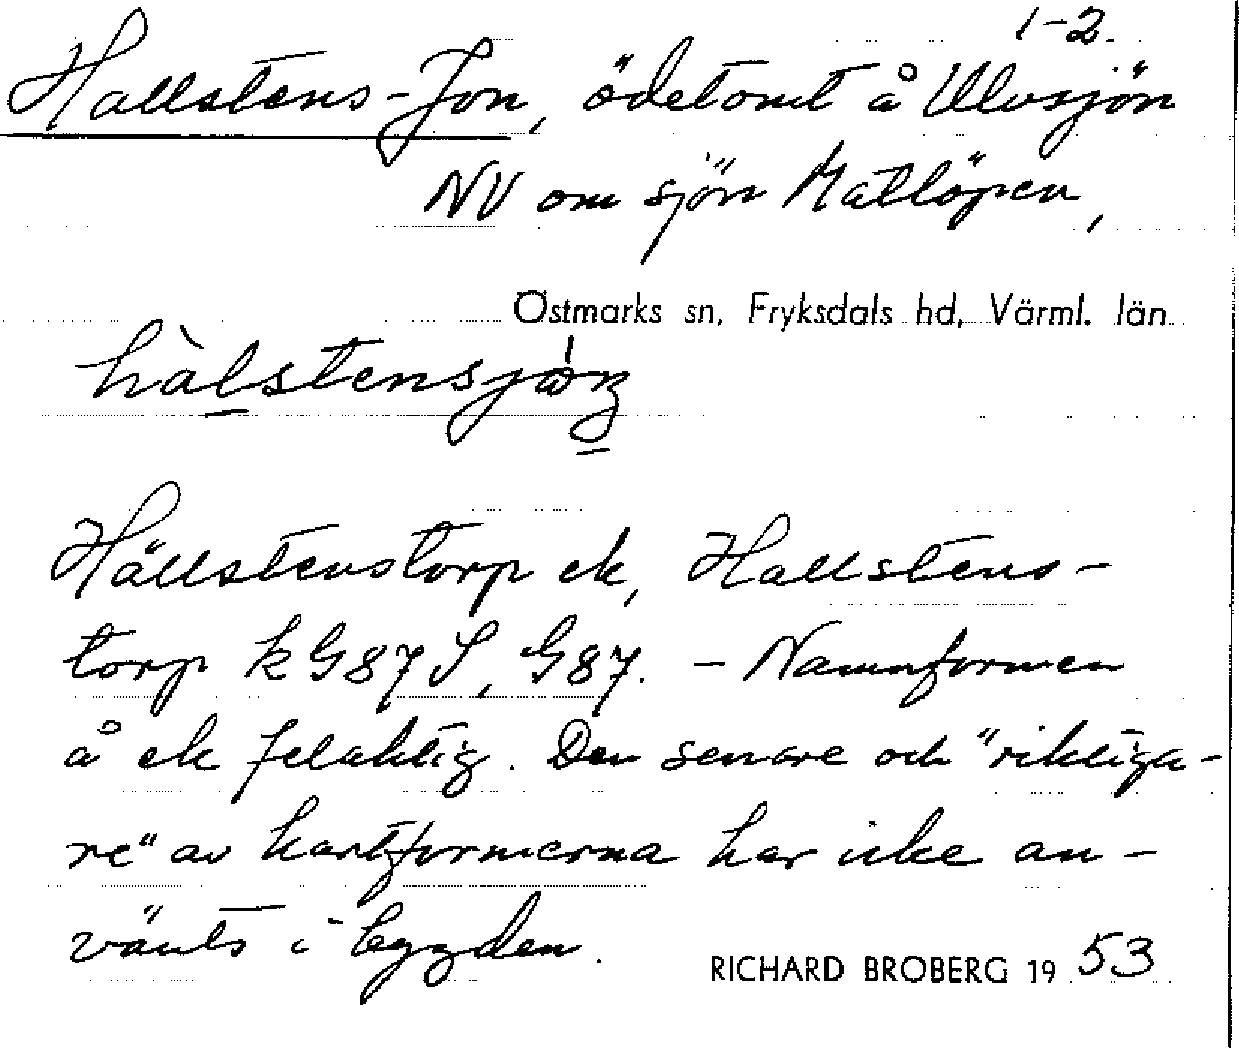 1-2.
Hallstens-Jon, ödetomt å Ulvsjön
NV om sjön Matlöpen,
Östmarks sn, Fryksdals hd, Värml. län
Hällstenstorp ek, Hallstens-
torp kG87S, G87. - Namnformen
å ek felaktig. Den senare och "riktiga-
re" av kartformerna har icke an-
vänts i bygden.
RICHARD BROBERG 1953